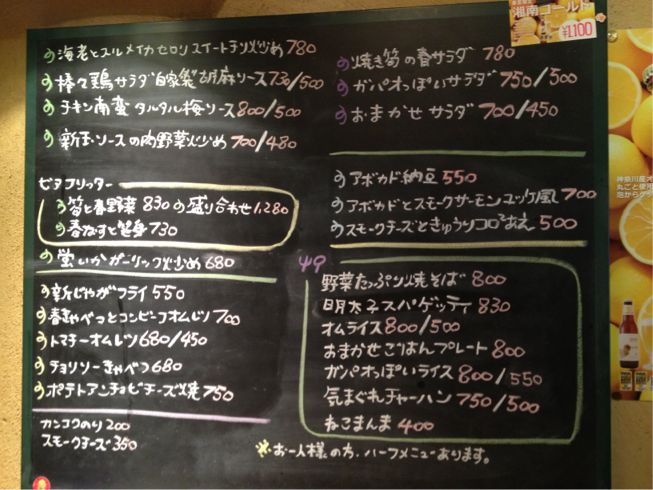 海老とスルメイカセロリスイートチリ炒め 780
棒々鶏サラダ自家製胡麻ソース 730/500
チキン南蛮タルタル梅ソース 800/500
新玉ソースの肉野菜炒め 700/480
ビアフリッター
筍と春野菜 830 の盛り合わせ 1,280
春なすと 730
蛍いかガーリック炒め 680
新じゃがフライ 550
春きゃべつとコンビーフオムレツ 700
トマチーオムレツ 680/450
チョリソーきゃべつ 680
ポテトアンチョビチーズ焼 750
カンコクのり 200
スモークチーズ 350
焼き筍の春サラダ 780
ガパオっぽいサラダ 750/500
おまかせサラダ 700/450
アボカド納豆 550
アボカドとスモークサーモンユッケ風 700
スモークチーズときゅうりコロコロあえ 500
野菜たっぷり焼そば 800
明太子スパゲッティ 830
オムライス 800/500
おまかせごはんプレート 800
ガパオっぽいライス 800/550
気まぐれチャーハン 750/500
ねこまんま 400
※お一人様の方、ハーフメニューあります。
湘南ゴールド
¥1,100
神奈川産オ
丸ごと使用